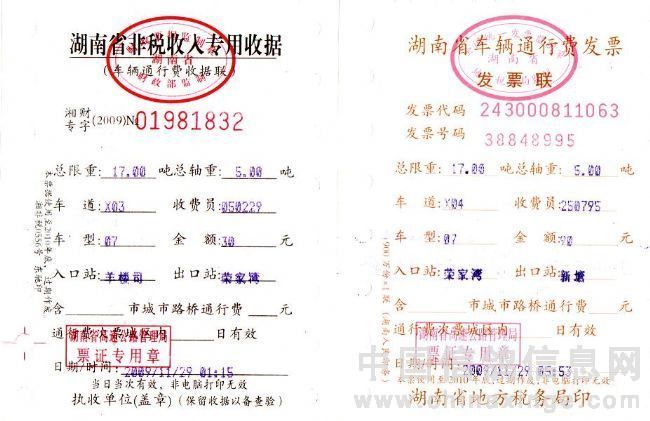 湖南省非税收入专用收据
(车辆通行费收据联)
湖南省
财政部监制
湘财
专字
(2009)№01981832
总限重:17.00 吨总轴重:5.00 吨
车 道:X03 收费员:050229
车 型:07 金 额:30 元
入口站:羊楼司 出口站:荣家湾
含 市城市路桥通行费 元
通行费次票城区内 日有效
湖南省高速公路管理局
票证专用章
日期/时间:2009/11/29 01:15
当日当次有效、非电脑打印无效
执收单位(盖章) (保留收据以备查验)
湖南省车辆通行费发票
湖南省
发票联
发票代码 243000811063
发票号码 38848995
总限重:17.00 吨总轴重:5.00 吨
车 道:X04 收费员:250795
车 型:07 金 额:90 元
入口站:荣家湾 出口站:新塘
含 市城市路桥通行费 元
通行费次票城区内 日有效
湖南省高速公路管理局
票证专用章
日期/时间:2009/11/29 05:53
湖南省地方税务局印